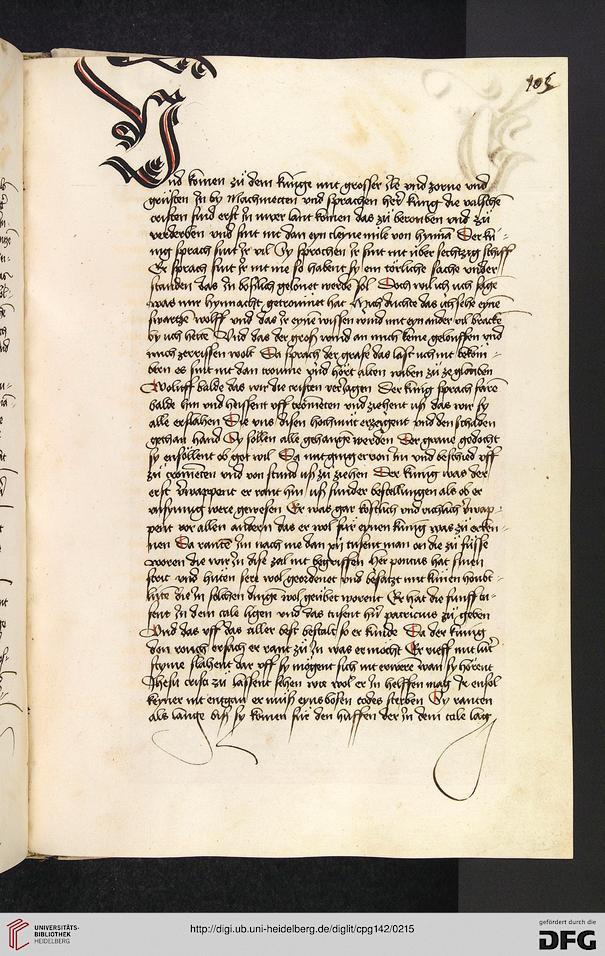 105
Und komen zů dem kunige mit grosser yle vnd zorne vnd
grüsten yn by Machmeten vnd sprachen her kunig die valsche
cristen sind erst in uwer lant komen das zů berouben vnd zů
verderben vnd sint nit dan eyn cleyne mile von hynnā Der kü
nig sprach sint ir vil Sy sprochen ir sint nit über sechtzig schiff
Er sprach sint ir nit me so habent sy ein törliche sache vnder
standen das zů boßlich gelonet werde sol Doch wil ich uch sage
was mir hynnacht getroumet hat Mich duchte das ich sehe eyne
swartze wolff vnd das ir eyne wissen wind mit eyn ander vil bracke
by uch hette Vnd das der groß wind an mich keme geloffen vnd
mich zerrissen wolt Da sprach der grafe das last uch nit bekom
bern es sint nit dan troume vnd hört alten wiben zů ze glouben
Woluff balde das wir die cristen veriagen Der kunig sprach ferre
balde hin vnd heissent uff trometen vnd ziehent uß das wir sy
alle erslahen Die vns disen hochmůt erzeigent vnd den schaden
gethan hand Sy söllen alle gehangē werden Der graue gedocht
sy ensöllent ob got wil Da mit ging er von im vnd beschied uff
zů trometen vnd von stund uß zů ziehen Der kunig was der
erst gewappent er rant hin uß sunder bestellungen als ob er
vnsynnig were gewesen Er was gar kostlich vnd richlich gewap
pent vor allen andern das er wol für eynen kunig was zů erken
nen Da rante im nach me dan xij tusent man on die zů füsse
woren die wir in dise zal nit begriffen Her pontus hat sinen
stoit vnd hüten sere wol geordenet vnd besatzt mit kůnen houbt
lüte die in solchen dinge wol geübet worent Er hat die funff tu
sent in dem tale ligen vnd das tusent hern patricius zů geben
Vnd das uff das aller best bestalt so er kunde Da der kunig
den rouch ersach er rant zů in was er mocht Er rieff mit luter
stymme slahent dar uff sy mögent sich nit erwere wan sy hörent
Jhesu cristo zů lassent sehen wie wol er in helffen mag Jr ensol
keyner nit entgan er můß eyns bosen todes sterben Sy ranten
als lange biß sy komen für den huffen der in dem tale lag
UNIVERSITÄTS-
BIBLIOTHEK
HEIDELBERG
http://digi.ub.uni-heidelberg.de/diglit/cpg142/0215
gefördert durch die
DFG